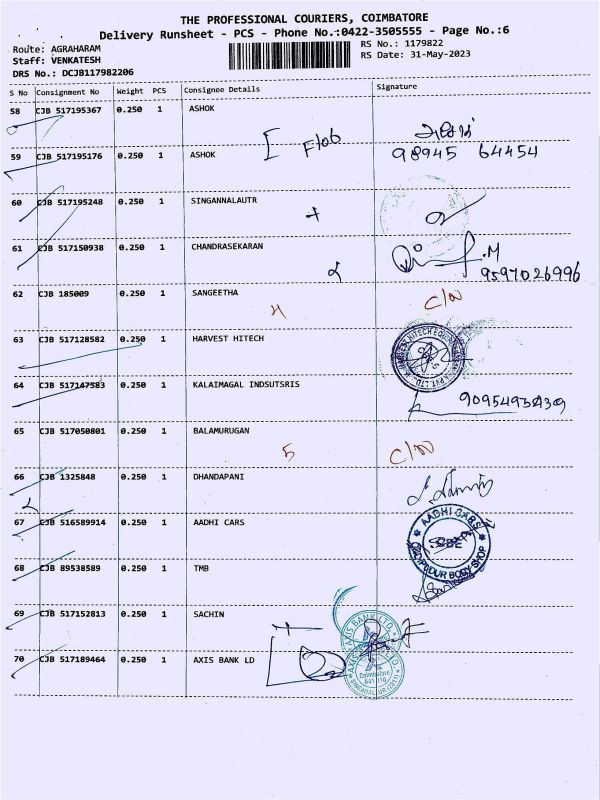 THE PROFESSIONAL COURIERS, COIMBATORE
Delivery Runsheet - PCS - Phone No.:0422-3505555 - Page No.:6
Route: AGRAHARAM
RS No.: 1179822
Staff: VENKATESH
RS Date: 31-May-2023
DRS No.: DCJB117982206
S No Consignment No Weight PCS Consignee Details Signature
58 CJB 517195367 0.250 1 ASHOK
59 CJB 517195176 0.250 1 ASHOK 98945 64454
60 CJB 517195248 0.250 1 SINGANNALAUTR
61 CJB 517150938 0.250 1 CHANDRASEKARAN
9597026996
62 CJB 185009 0.250 1 SANGEETHA
63 CJB 517128582 0.250 1 HARVEST HITECH
64 CJB 517147583 0.250 1 KALAIMAGAL INDSUTSRIS
65 CJB 517050801 0.250 1 BALAMURUGAN 5
66 CJB 1325848 0.250 1 DHANDAPANI
67 CJB 516589914 0.250 1 AADHI CARS AADHI CARS
BODY SHOP
68 CJB 89538589 0.250 1 TMB
69 CJB 517152813 0.250 1 SACHIN AXIS BANK LTD.
70 CJB 517189464 0.250 1 AXIS BANK LD AXIS BANK LTD.
Coimbatore